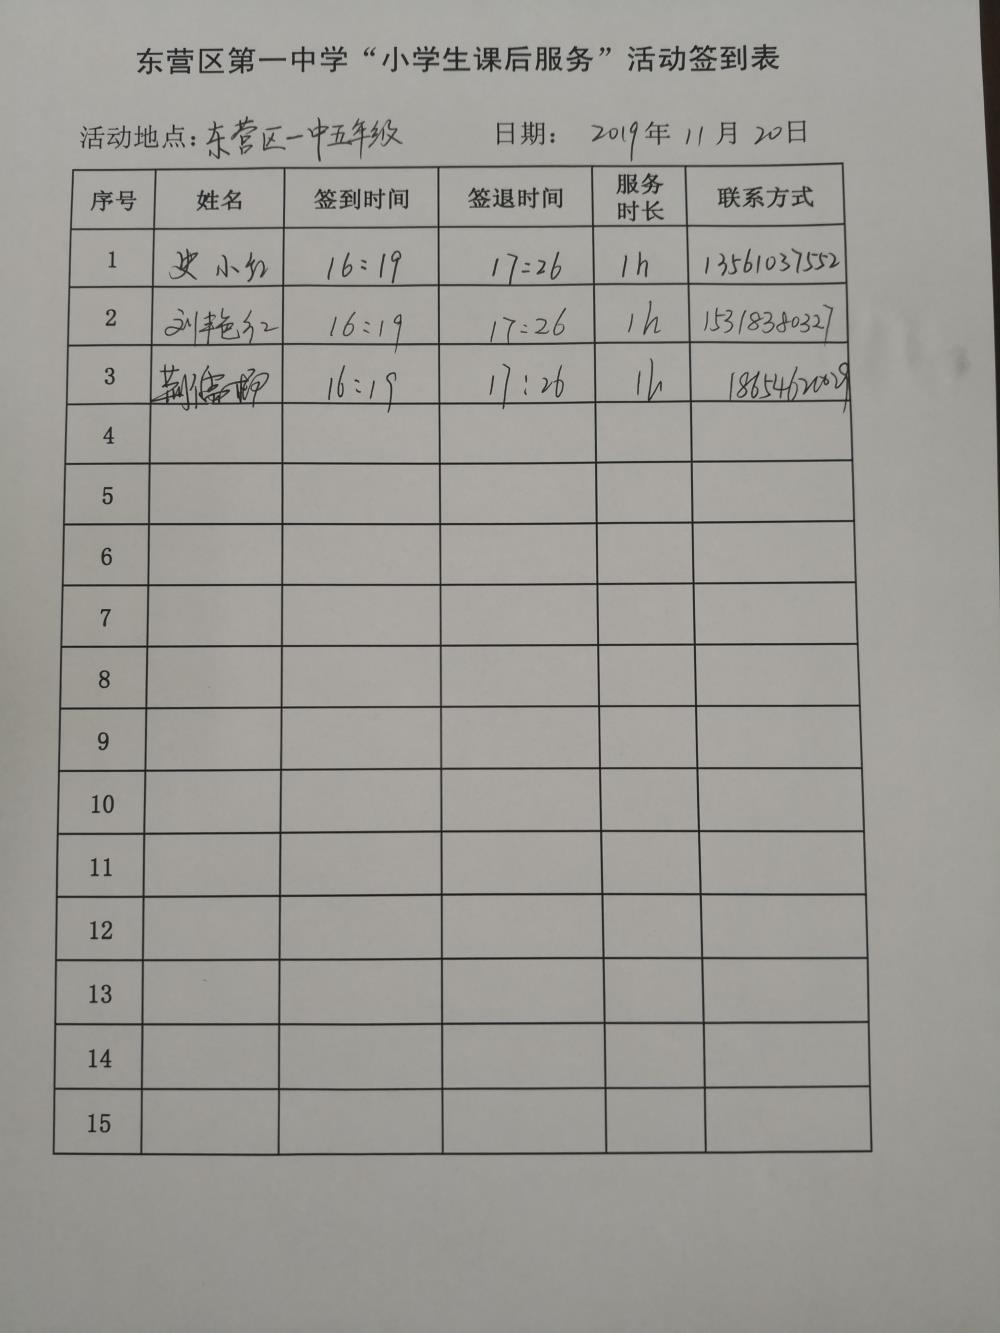 东营区第一中学“小学生课后服务”活动签到表
活动地点:东营区一中五年级 日期: 2019年 11月 20日
序号 姓名 签到时间 签退时间 服务时长 联系方式
1 史小红 16:19 17:26 1h 13561037552
2 刘艳红 16:19 17:26 1h 15318380327
3 16:19 17:26 1h 18654620029
4
5
6
7
8
9
10
11
12
13
14
15